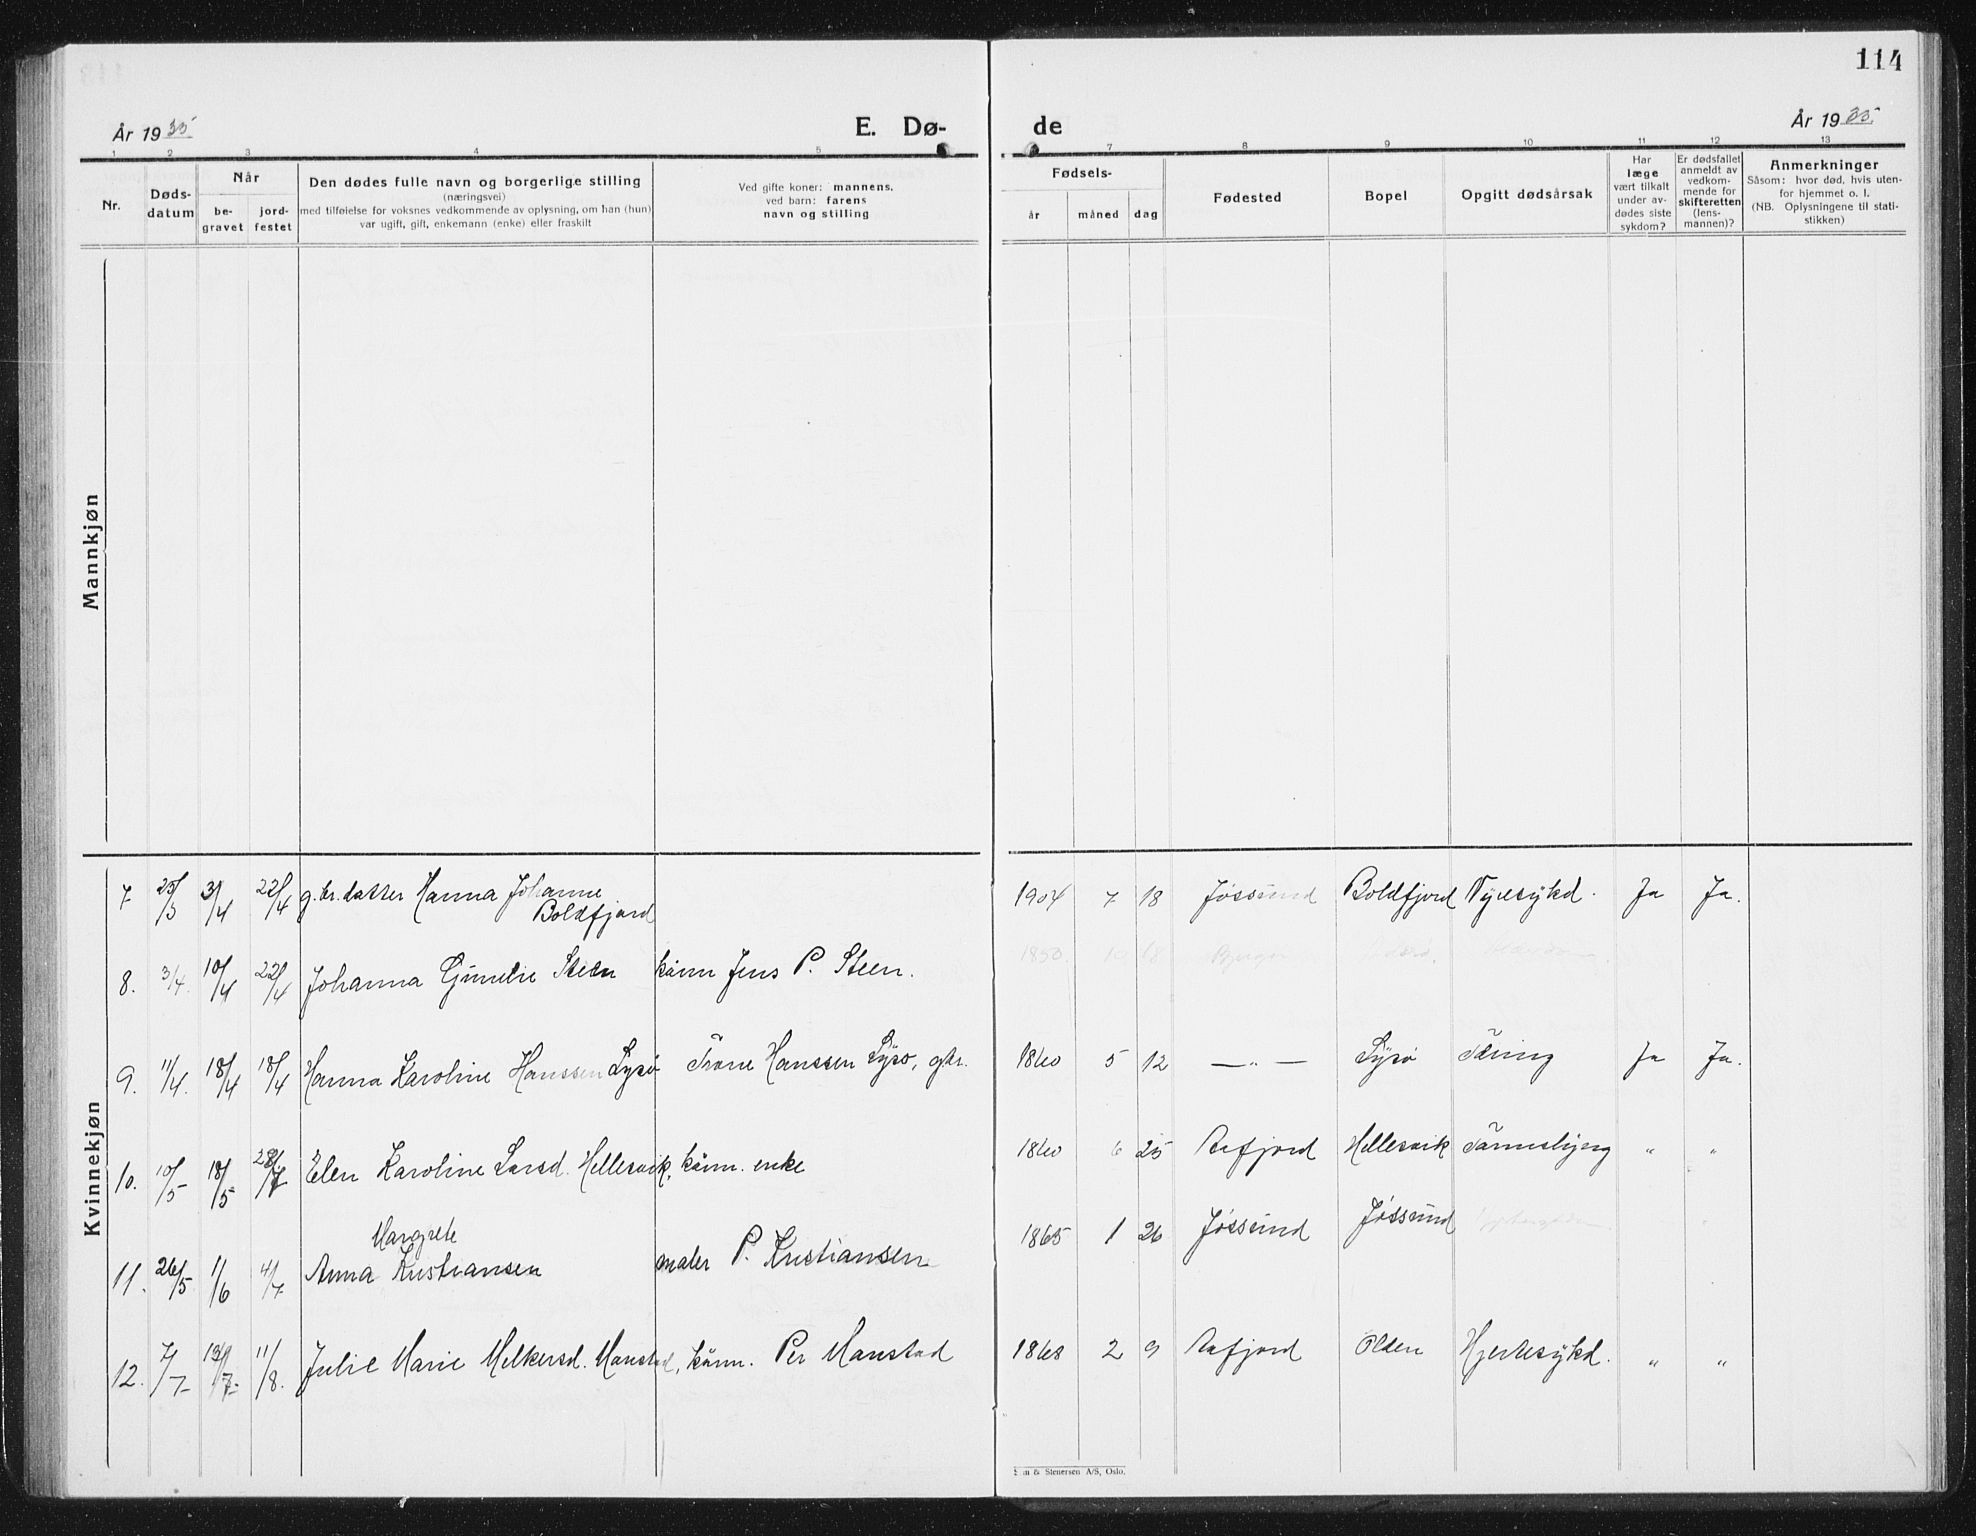 114
År 1935
E. Dø-
de
År 1935
1 2 3 4 5 7 8 9 10 11 12 13
Nr.
Døds-
datum
Når
be-
gravet
jord-
festet
Den dødes fulle navn og borgerlige stilling
(næringsvei)
med tilføielse for voksnes vedkommende av oplysning, om han (hun)
var ugift, gift, enkemann (enke) eller fraskilt
Ved gifte koner: mannens,
ved barn: farens
navn og stilling
Fødsels-
år måned dag
Fødested
Bopel
Opgitt dødsårsak
Har
læge
vært tilkalt
under av-
dødes siste
sykdom?
Er dødsfallet
anmeldt av
vedkom-
mende for
skifteretten
(lens-
mannen)?
Anmerkninger
Såsom: hvor død, hvis uten-
for hjemmet o. l.
(NB. Oplysningene til stati-
stikken)
Mannkjøn
Kvinnekjøn
7 25/3 3/4 22/4 g.br.datter Hanna Johanne
Boldfjord
1904 7 18 Jøssund Boldfjord Nyresykd. Ja Ja.
8. 3/4. 10/4 22/4 Johanna Gunelie Steen kånn Jens P. Steen.
1850. 10 18
9. 11/4. 18/4 18/4 Hanna Karoline Hanssen Lysø Trone Hanssen Lysø, gbr.
1860 5 12 — „ — Lysø Tæring Ja Ja.
10. 10/5 18/5 28/7 Elen Karoline Larsd. Hellesvik, kånn. enke
1860 6 25 Aafjord Hellesvik „ „
Margrete
11. 26/5 1/6 4/7 Anna Kristiansen maler P. Kristiansen
1865 1 26 Jøssund Jøssund
12. 7/7 13/7 11/8. Julie Marie Melkersd. Manstad, kånn. Per Manstad
1868 2 9 Aafjord Olden Hjertesykd. „ „
& Stenersen A/S, Oslo.